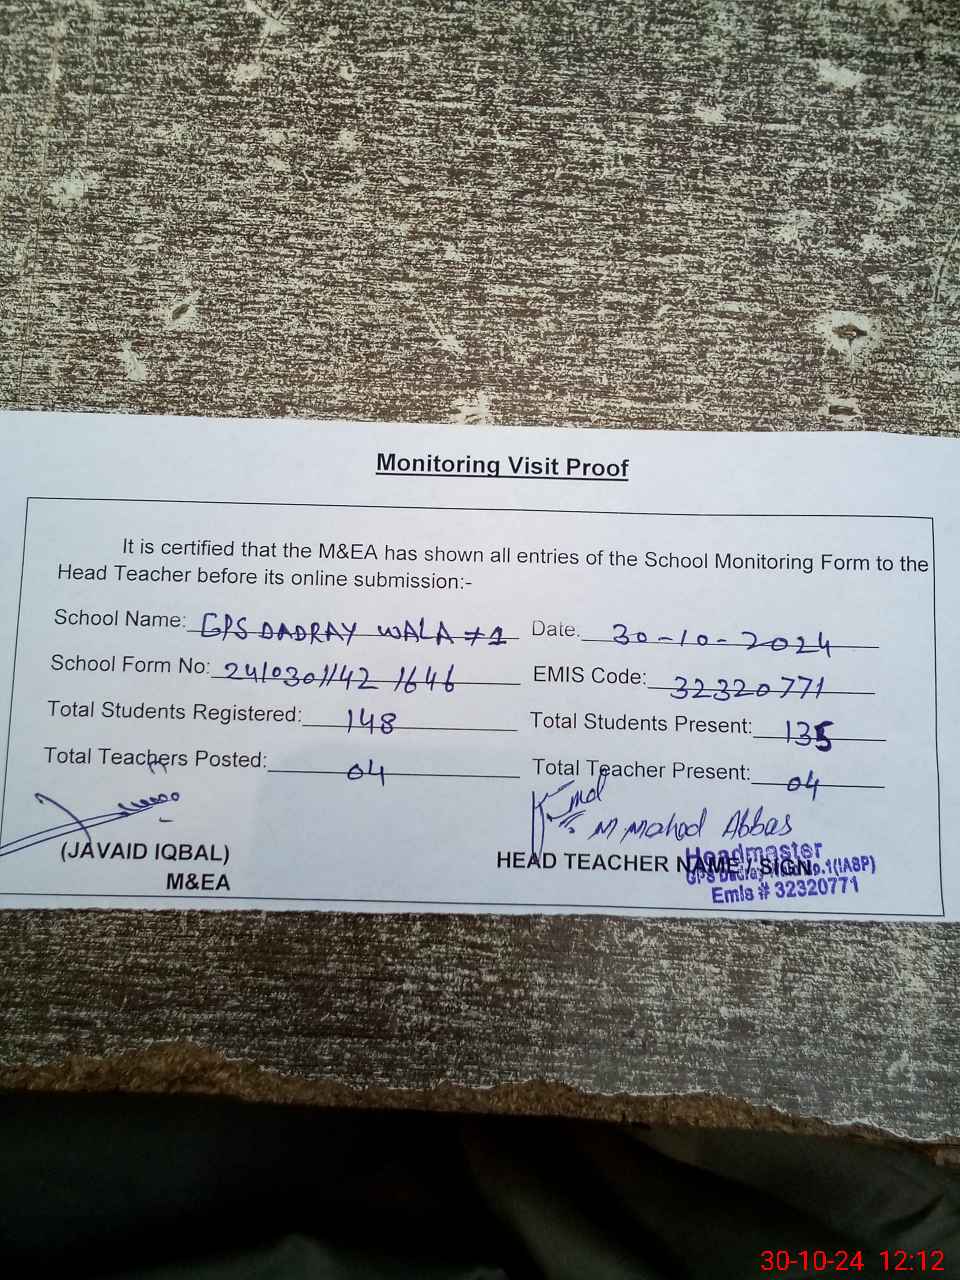 Monitoring Visit Proof
It is certified that the M&EA has shown all entries of the School Monitoring Form to the
Head Teacher before its online submission:-
School Name: GPS DADRAY WALA #1 Date. 30-10-2024
School Form No: 2410301142 1646 EMIS Code: 32320771
Total Students Registered: 148 Total Students Present: 135
Total Teachers Posted: 04 Total Teacher Present: 04
M Mahod Abbas
(JAVAID IQBAL) HEAD TEACHER NAME / SIGN
M&EA
Headmaster
GPS No.1(IASP)
Emis # 32320771
30-10-24 12:12